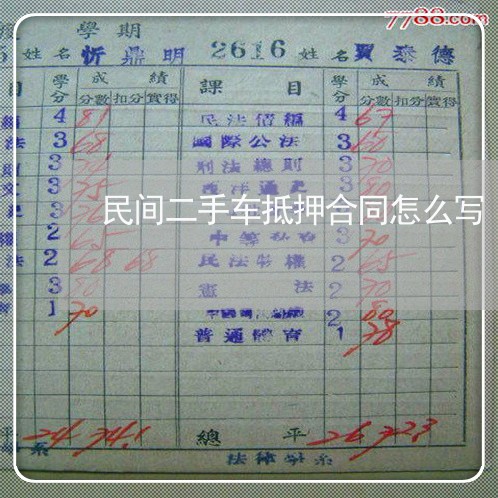 7788.com
學期
姓名 忻鼎明 2616 姓名 賈泰德
目 學分 成績 課目 學分 成績
分數 扣分 實得 分數 扣分 實得
4 81 民法債編 4 67
法 3 68 國際公法 3 60
3 刑法總則 3 70
3 75 西洋通史 3 80
3
民间二手车抵押合同怎么写
2 65 3 70
法 2 68 68 民法物權 2 65
3 80 憲法 2 70
1 70 2 80
普通體育 1 78
平 24 74.1 總平 26 72.3
系 法律學系